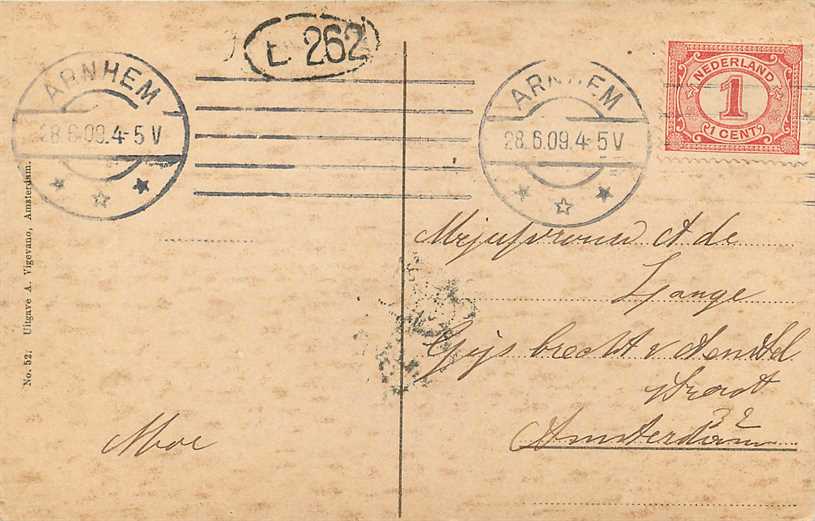 E 262
ARNHEM
28.6.09.4-5 V
ARNHEM
28.6.09.4-5 V
NEDERLAND
1
1 CENT
No. 52; Uitgave A. Vigevano, Amsterdam.
Mejufvrouw A de
Gijsbrecht v Aemstel
straat
32
Amsterdam
Moe